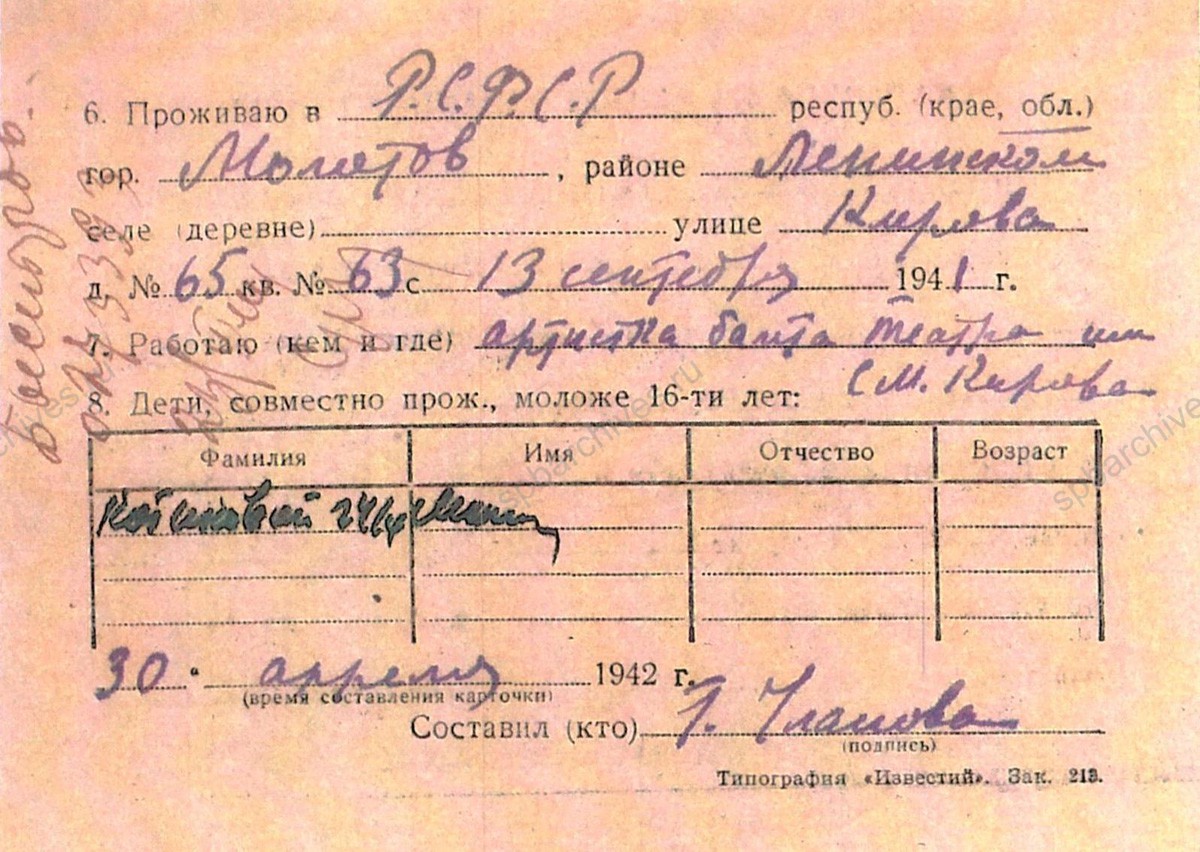 6. Проживаю в Р.С.Ф.С.Р респуб. (крае, обл.)
гор. Молотов, районе Ленинском
селе (деревне) улице Кирова
д. № 65 кв. № 63 с 13 сентября 1941 г.
7. Работаю (кем и где) артистка балета театра им
С.М. Кирова
8. Дети, совместно прож., моложе 16-ти лет:
Фамилия Имя Отчество Возраст
30 " апреля 1942 г.
(время составления карточки)
Составил (кто) Г. Уланова
(подпись)
Типография «Известий». Зак. 213.
spbarchives.ru